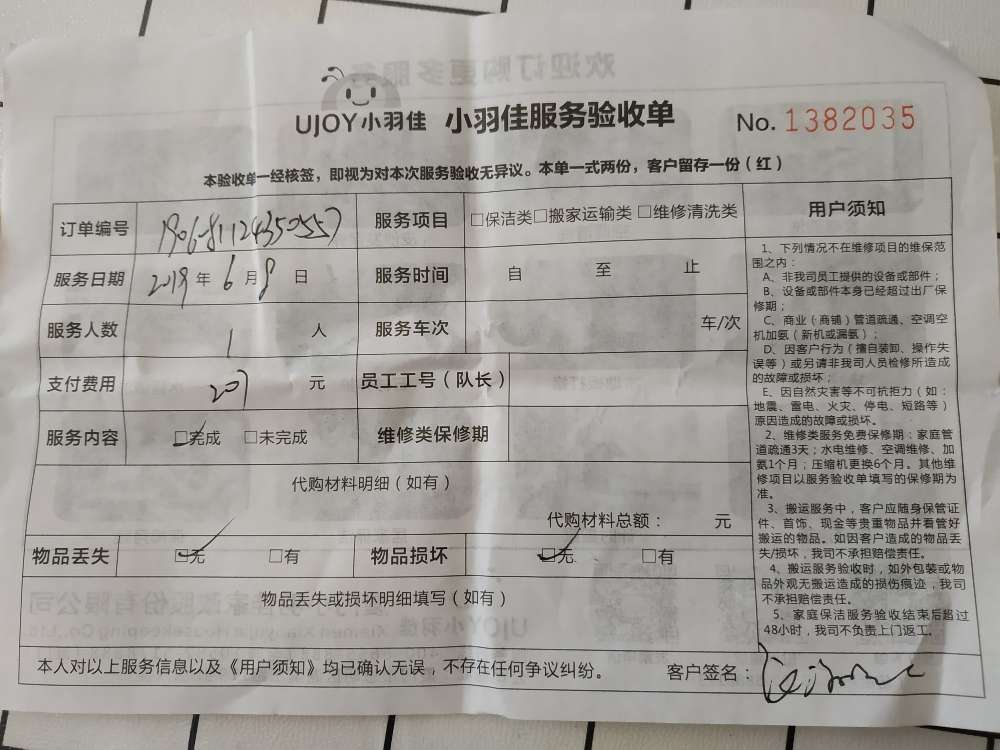 UJOY小羽佳 小羽佳服务验收单 No. 1382035
本验收单一经核签，即视为对本次服务验收无异议。本单一式两份，客户留存一份（红）
订单编号 服务项目 □保洁类□搬家运输类□维修清洗类
服务日期 2019 年 6 月 8 日 服务时间 自 至 止
服务人数 1 人 服务车次 车/次
支付费用 207 元 员工工号（队长）
服务内容 □完成 □未完成 维修类保修期
代购材料明细（如有）
代购材料总额： 元
物品丢失 □无 □有 物品损坏 □无 □有
物品丢失或损坏明细填写（如有）
本人对以上服务信息以及《用户须知》均已确认无误，不存在任何争议纠纷。 客户签名：
用户须知
1、下列情况不在维修项目的维保范
围之内：
A、非我司员工提供的设备或部件；
B、设备或部件本身已经超过出厂保
修期；
C、商业（商铺）管道疏通、空调空
机加氨（新机或漏氨）；
D、因客户行为（擅自装卸、操作失
误等）或另请非我司人员检修所造成
的故障或损坏；
E、因自然灾害等不可抗拒力（如：
地震、雷电、火灾、停电、短路等）
原因造成的故障或损坏。
2、维修类服务免费保修期：家庭管
道疏通3天；水电维修、空调维修、加
氨1个月；压缩机更换6个月。其他维
修项目以服务验收单填写的保修期为
准。
3、搬运服务中，客户应随身保管证
件、首饰、现金等贵重物品并看管好
搬运的物品。如因客户造成的物品丢
失/损坏，我司不承担赔偿责任。
4、搬运服务验收时，如外包装或物
品外观无搬运造成的损伤痕迹，我司
不承担赔偿责任。
5、家庭保洁服务验收结束后超过
48小时，我司不负责上门返工。